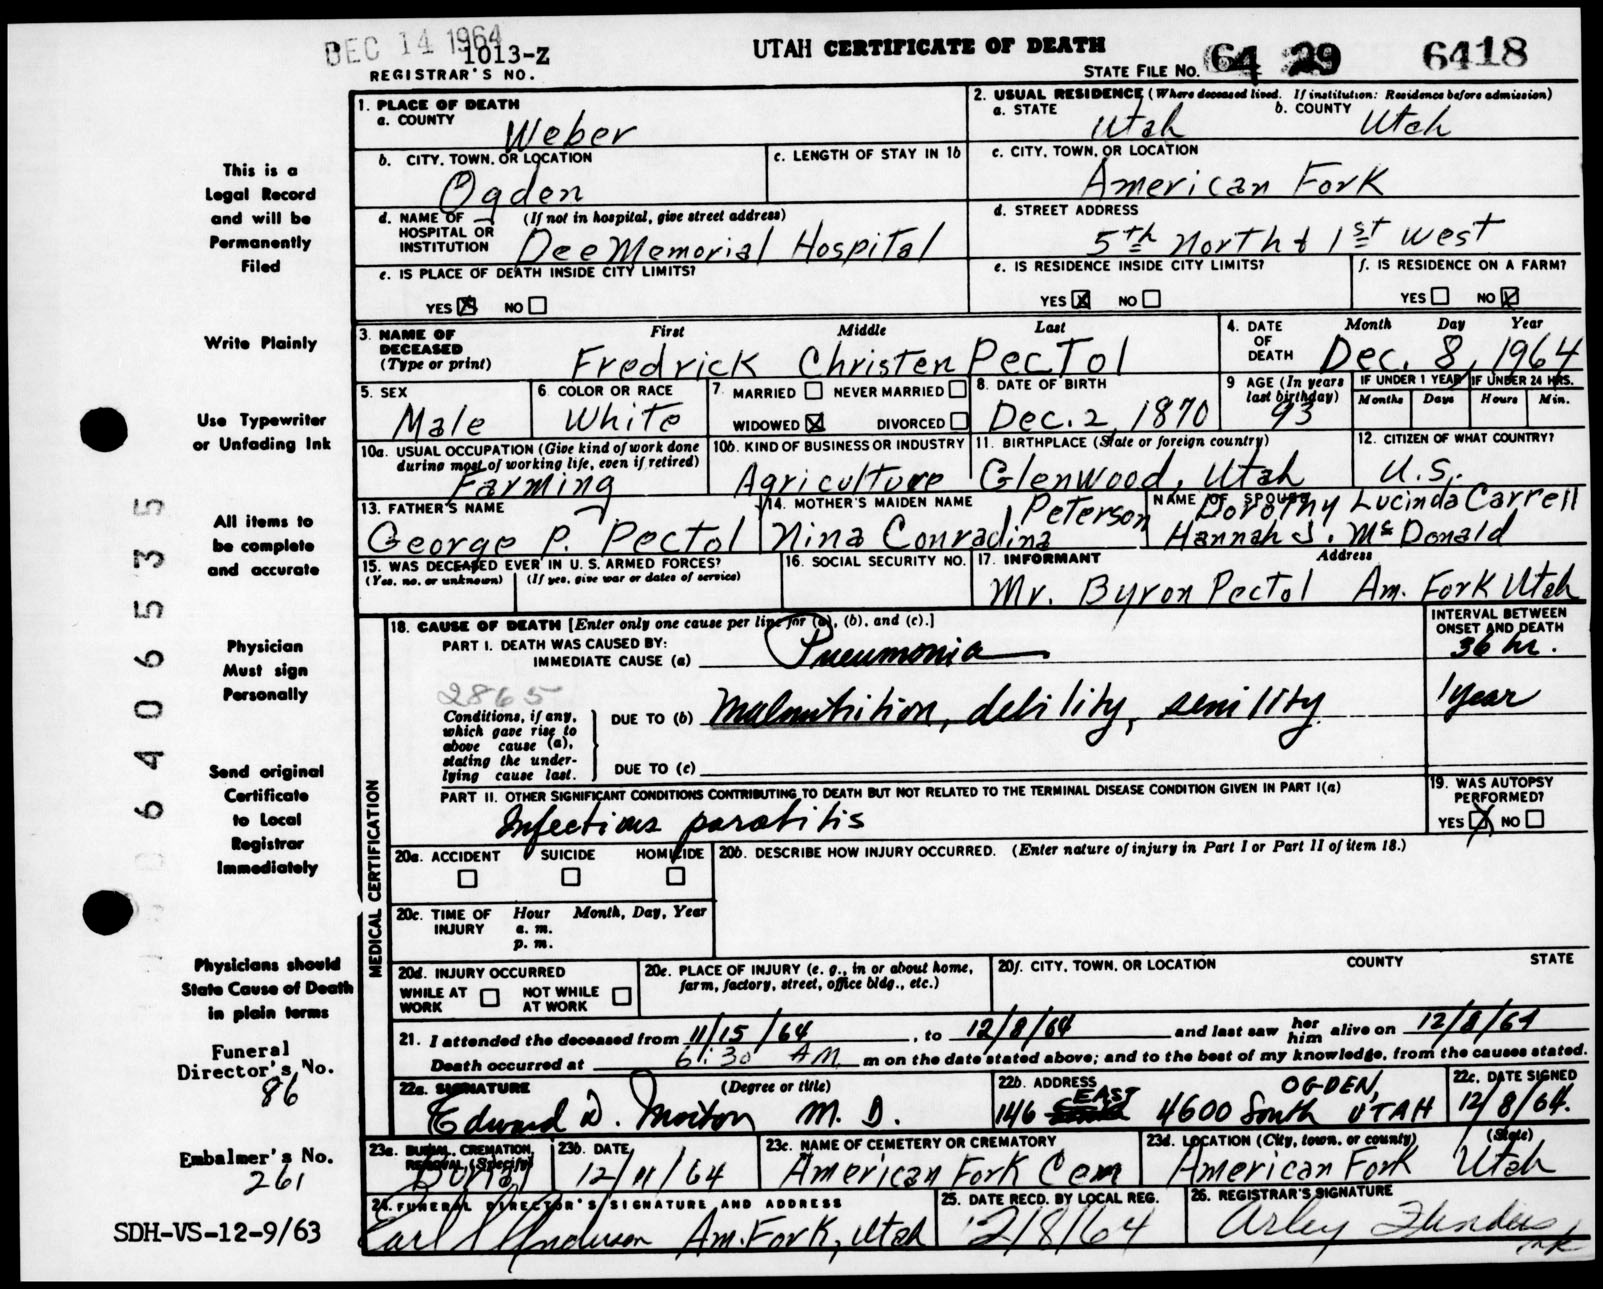 DEC 14 1964
1013-Z
REGISTRAR'S NO.
UTAH CERTIFICATE OF DEATH
STATE FILE NO. 64 29 6418
This is a
Legal Record
and will be
Permanently
Filed
Write Plainly
Use Typewriter
or Unfading Ink
All items to
be complete
and accurate
Physician
Must sign
Personally
Send original
Certificate
to Local
Registrar
Immediately
Physicians should
State Cause of Death
in plain terms
Funeral
Director's No.
86
Embalmer's No.
261
SDH-VS-12-9/63
1. PLACE OF DEATH
a. COUNTY
Weber
2. USUAL RESIDENCE (Where deceased lived. If institution: Residence before admission)
a. STATE Utah b. COUNTY Utah
b. CITY, TOWN, OR LOCATION
Ogden
c. LENGTH OF STAY IN 1b
c. CITY, TOWN, OR LOCATION
American Fork
d. NAME OF (If not in hospital, give street address)
HOSPITAL OR
INSTITUTION Dee Memorial Hospital
d. STREET ADDRESS
5th North & 1st West
e. IS PLACE OF DEATH INSIDE CITY LIMITS?
YES NO
e. IS RESIDENCE INSIDE CITY LIMITS?
YES NO
f. IS RESIDENCE ON A FARM?
YES NO
3. NAME OF
DECEASED
(Type or print)
First Middle Last
Fredrick Christen Pectol
4. DATE
OF
DEATH
Month Day Year
Dec. 8, 1964
5. SEX
Male
6. COLOR OR RACE
White
7. MARRIED NEVER MARRIED
WIDOWED DIVORCED
8. DATE OF BIRTH
Dec. 2, 1870
9 AGE (In years
last birthday)
93
IF UNDER 1 YEAR IF UNDER 24 HRS.
Months Days Hours Min.
10a. USUAL OCCUPATION (Give kind of work done
during most of working life, even if retired)
Farming
10b. KIND OF BUSINESS OR INDUSTRY
Agriculture
11. BIRTHPLACE (State or foreign country)
Glenwood, Utah
12. CITIZEN OF WHAT COUNTRY?
U.S.
13. FATHER'S NAME
George P. Pectol
14. MOTHER'S MAIDEN NAME
Nina Conradina Peterson
NAME OF SPOUSE
Dorothy Lucinda Carrell
Hannah J. McDonald
15. WAS DECEASED EVER IN U. S. ARMED FORCES?
(Yes, no, or unknown) (If yes, give war or dates of service)
16. SOCIAL SECURITY NO.
17. INFORMANT Address
Mr. Byron Pectol Am. Fork Utah
MEDICAL CERTIFICATION
18. CAUSE OF DEATH [Enter only one cause per line for (a), (b), and (c).]
PART I. DEATH WAS CAUSED BY:
IMMEDIATE CAUSE (a) Pneumonia
INTERVAL BETWEEN
ONSET AND DEATH
36 hr.
2865
Conditions, if any,
which gave rise to
above cause (a),
stating the under-
lying cause last.
DUE TO (b) Malnutrition, debility, senility
1 year
DUE TO (c)
PART II. OTHER SIGNIFICANT CONDITIONS CONTRIBUTING TO DEATH BUT NOT RELATED TO THE TERMINAL DISEASE CONDITION GIVEN IN PART I(a)
Infectious parotitis
19. WAS AUTOPSY
PERFORMED?
YES NO
20a. ACCIDENT SUICIDE HOMICIDE
20b. DESCRIBE HOW INJURY OCCURRED. (Enter nature of injury in Part I or Part II of item 18.)
20c. TIME OF Hour Month, Day, Year
INJURY a. m.
p. m.
20d. INJURY OCCURRED
WHILE AT NOT WHILE
WORK AT WORK
20e. PLACE OF INJURY (e. g., in or about home,
farm, factory, street, office bldg., etc.)
20f. CITY, TOWN, OR LOCATION COUNTY STATE
21. I attended the deceased from 11/15/64, to 12/8/64 and last saw her him alive on 12/8/64
Death occurred at 6:30 AM m on the date stated above; and to the best of my knowledge, from the causes stated.
22a. SIGNATURE (Degree or title)
Edward D. Morton M. D.
22b. ADDRESS
146 EAST 4600 South OGDEN, UTAH
22c. DATE SIGNED
12/8/64.
23a. BURIAL, CREMATION,
REMOVAL (Specify)
Burial
23b. DATE
12/11/64
23c. NAME OF CEMETERY OR CREMATORY
American Fork Cem
23d. LOCATION (City, town, or county) (State)
American Fork Utah
24. FUNERAL DIRECTOR'S SIGNATURE AND ADDRESS
Earl Anderson Am. Fork, Utah
25. DATE RECD. BY LOCAL REG.
12/8/64
26. REGISTRAR'S SIGNATURE
Arley Flinders
mk